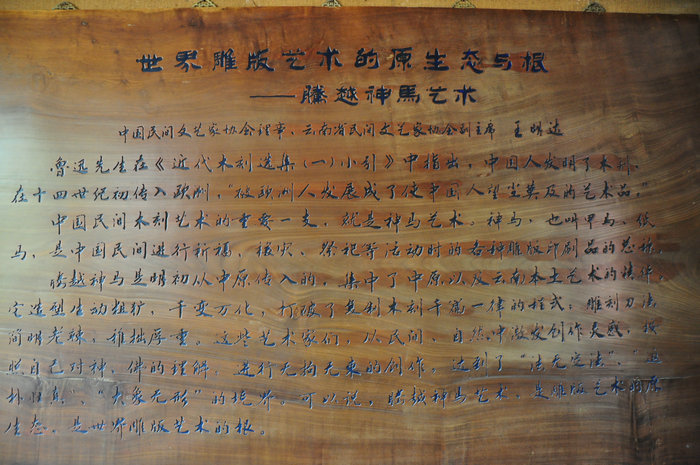 世界雕版艺术的原生态与根
——腾越神馬艺术
中国民间文艺家协会理事、云南省民间文艺家协会副主席 王明达
鲁迅先生在《近代木刻选集(一)小引》中指出,中国人发明了木刻,
在十四世纪初传入欧洲,“被欧洲人发展成了使中国人望尘莫及的艺术品。”
中国民间木刻艺术的重要一支,就是神马艺术。神马,也叫甲马、纸
马,是中国民间进行祈福、禳灾、祭祀等活动时的各种雕版印刷品的总称。
腾越神马是明初从中原传入的,集中了中原以及云南本土艺术的精华,
它造型生动粗犷,千变万化,打破了复制木刻千篇一律的程式,雕刻刀法
简明老辣,稚拙厚重。这些艺术家们,从民间、自然中激发创作灵感,按
照自己对神、佛的理解,进行无拘无束的创作,达到了“法无定法”、“返
朴归真”、“大象无形”的境界。可以说,腾越神马艺术,是雕版艺术的原
生态,是世界雕版艺术的根。